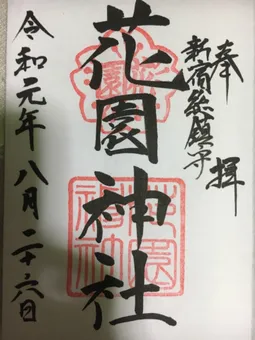 奉拝
新宿総鎮守
花園神社
令和元年八月二十六日
花園神社